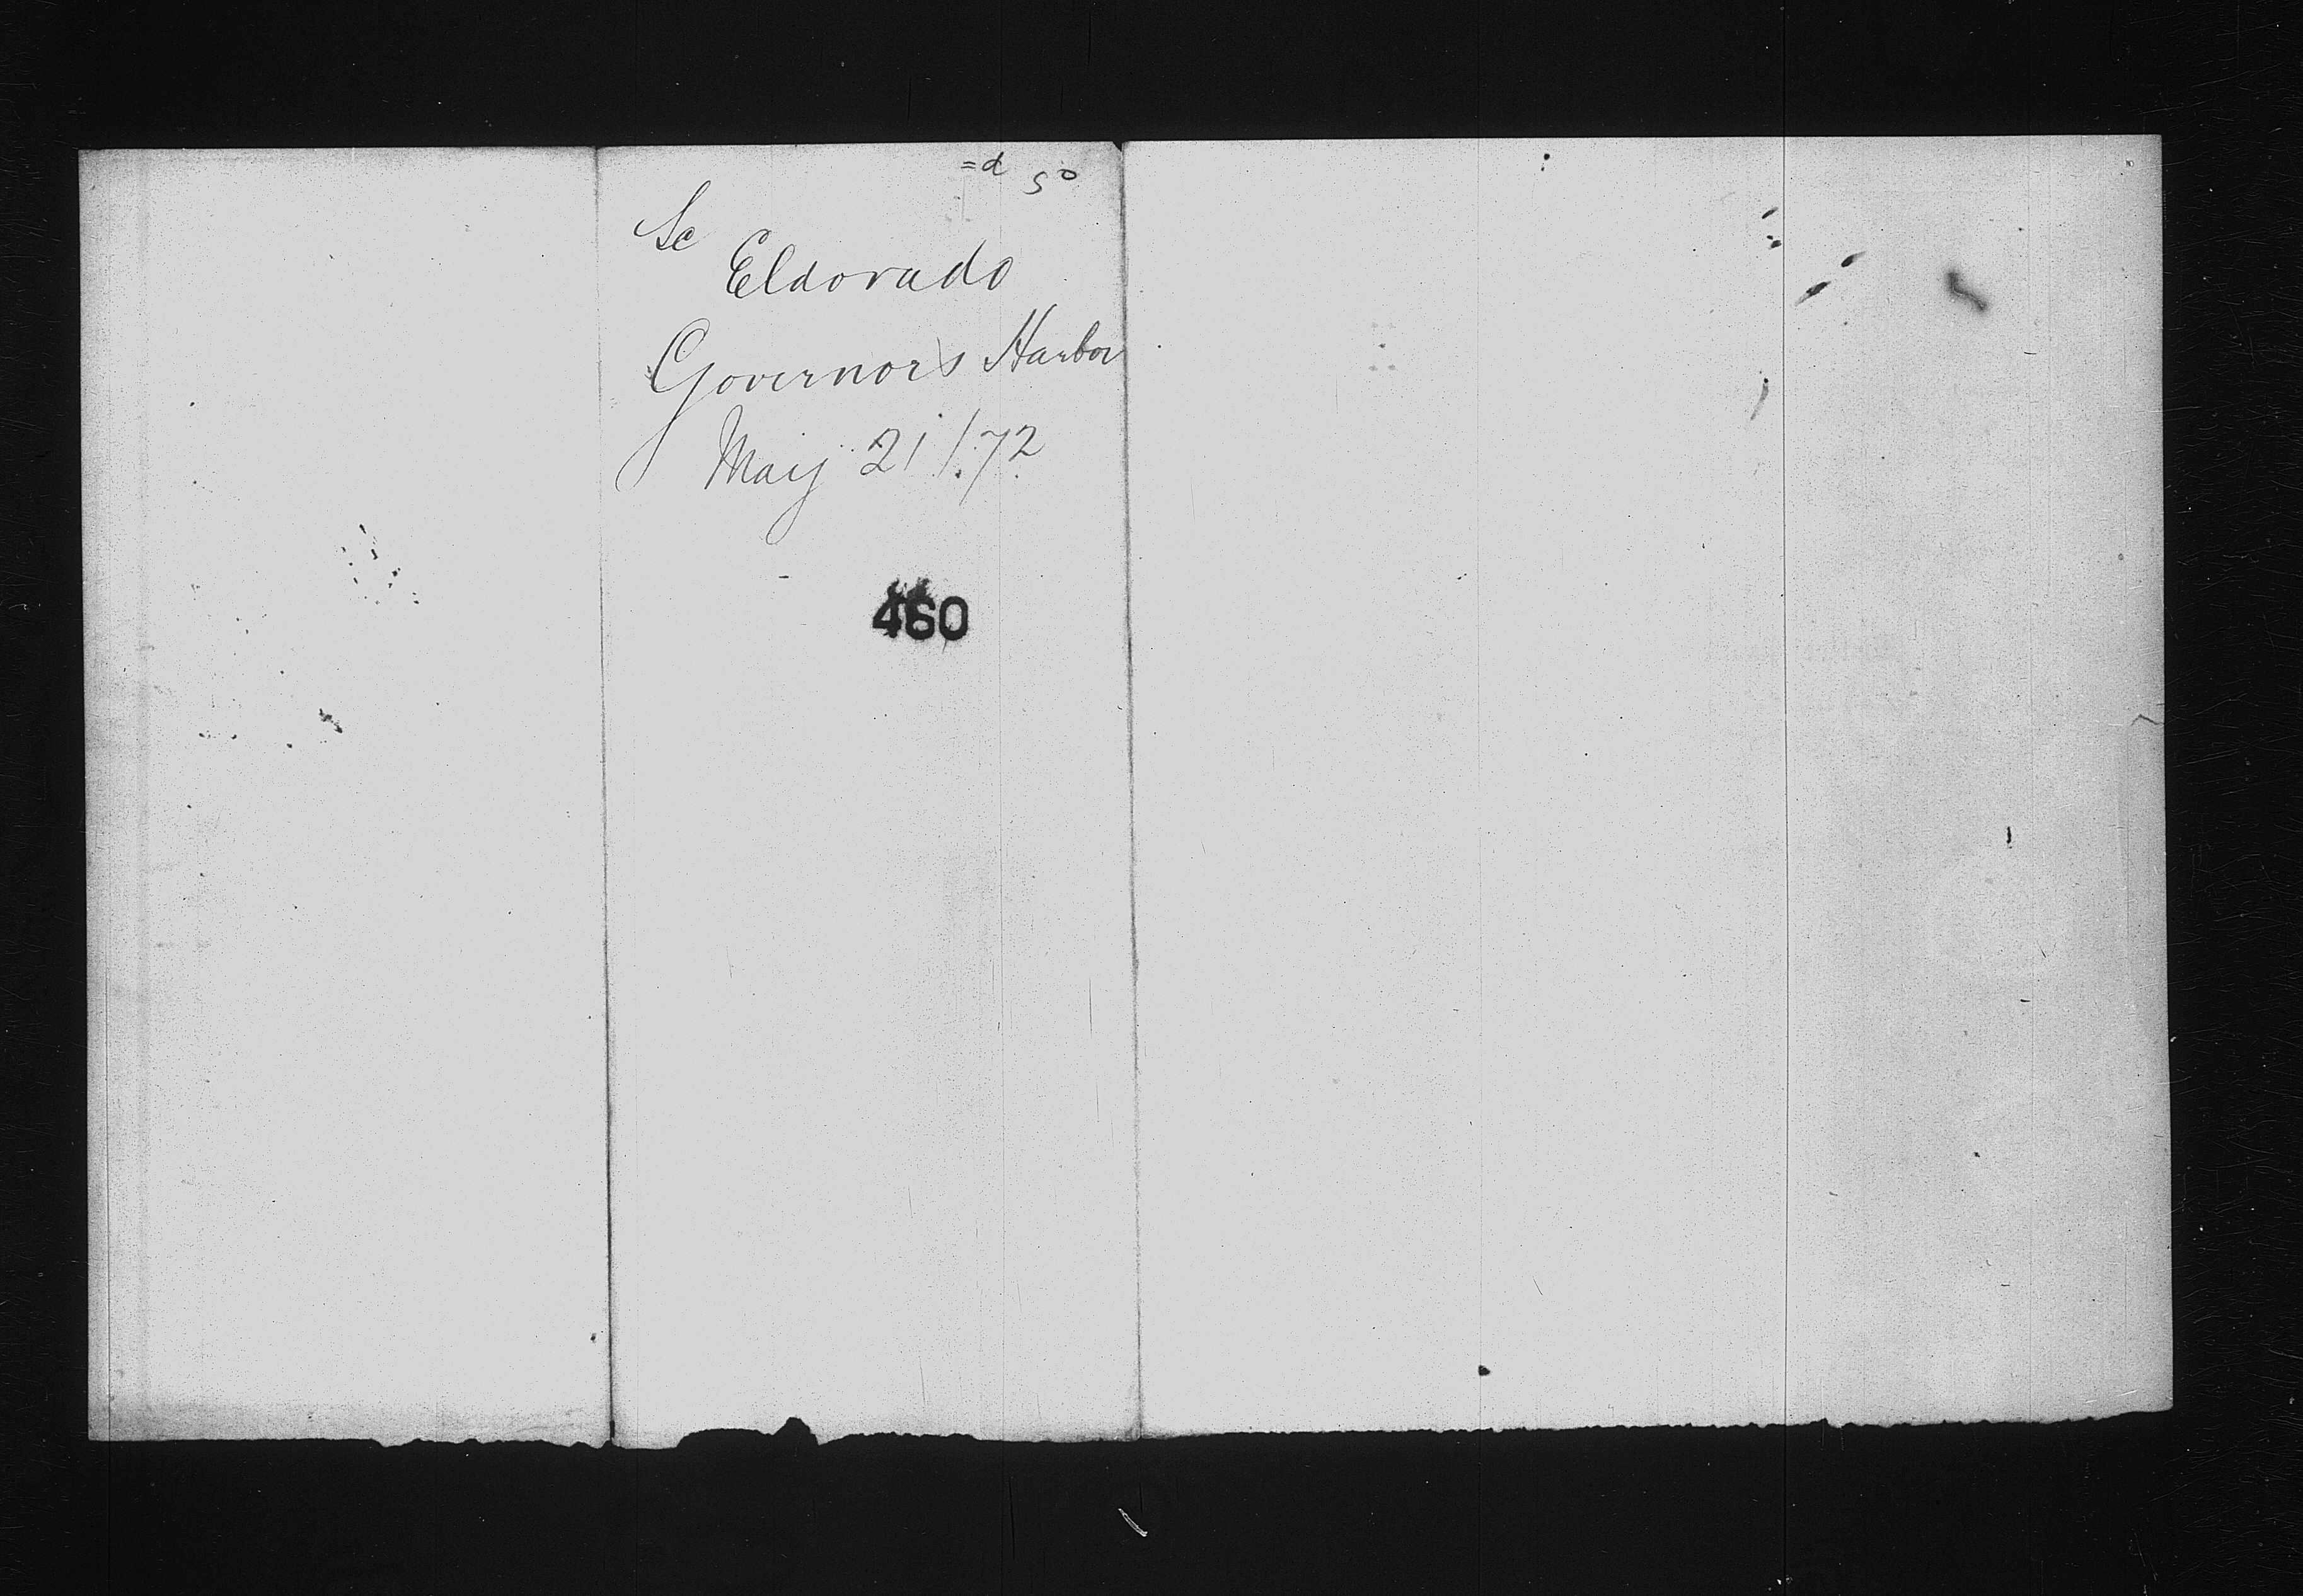 Sc
Eldorado
Governor's Harbor
May 21 / 72
460